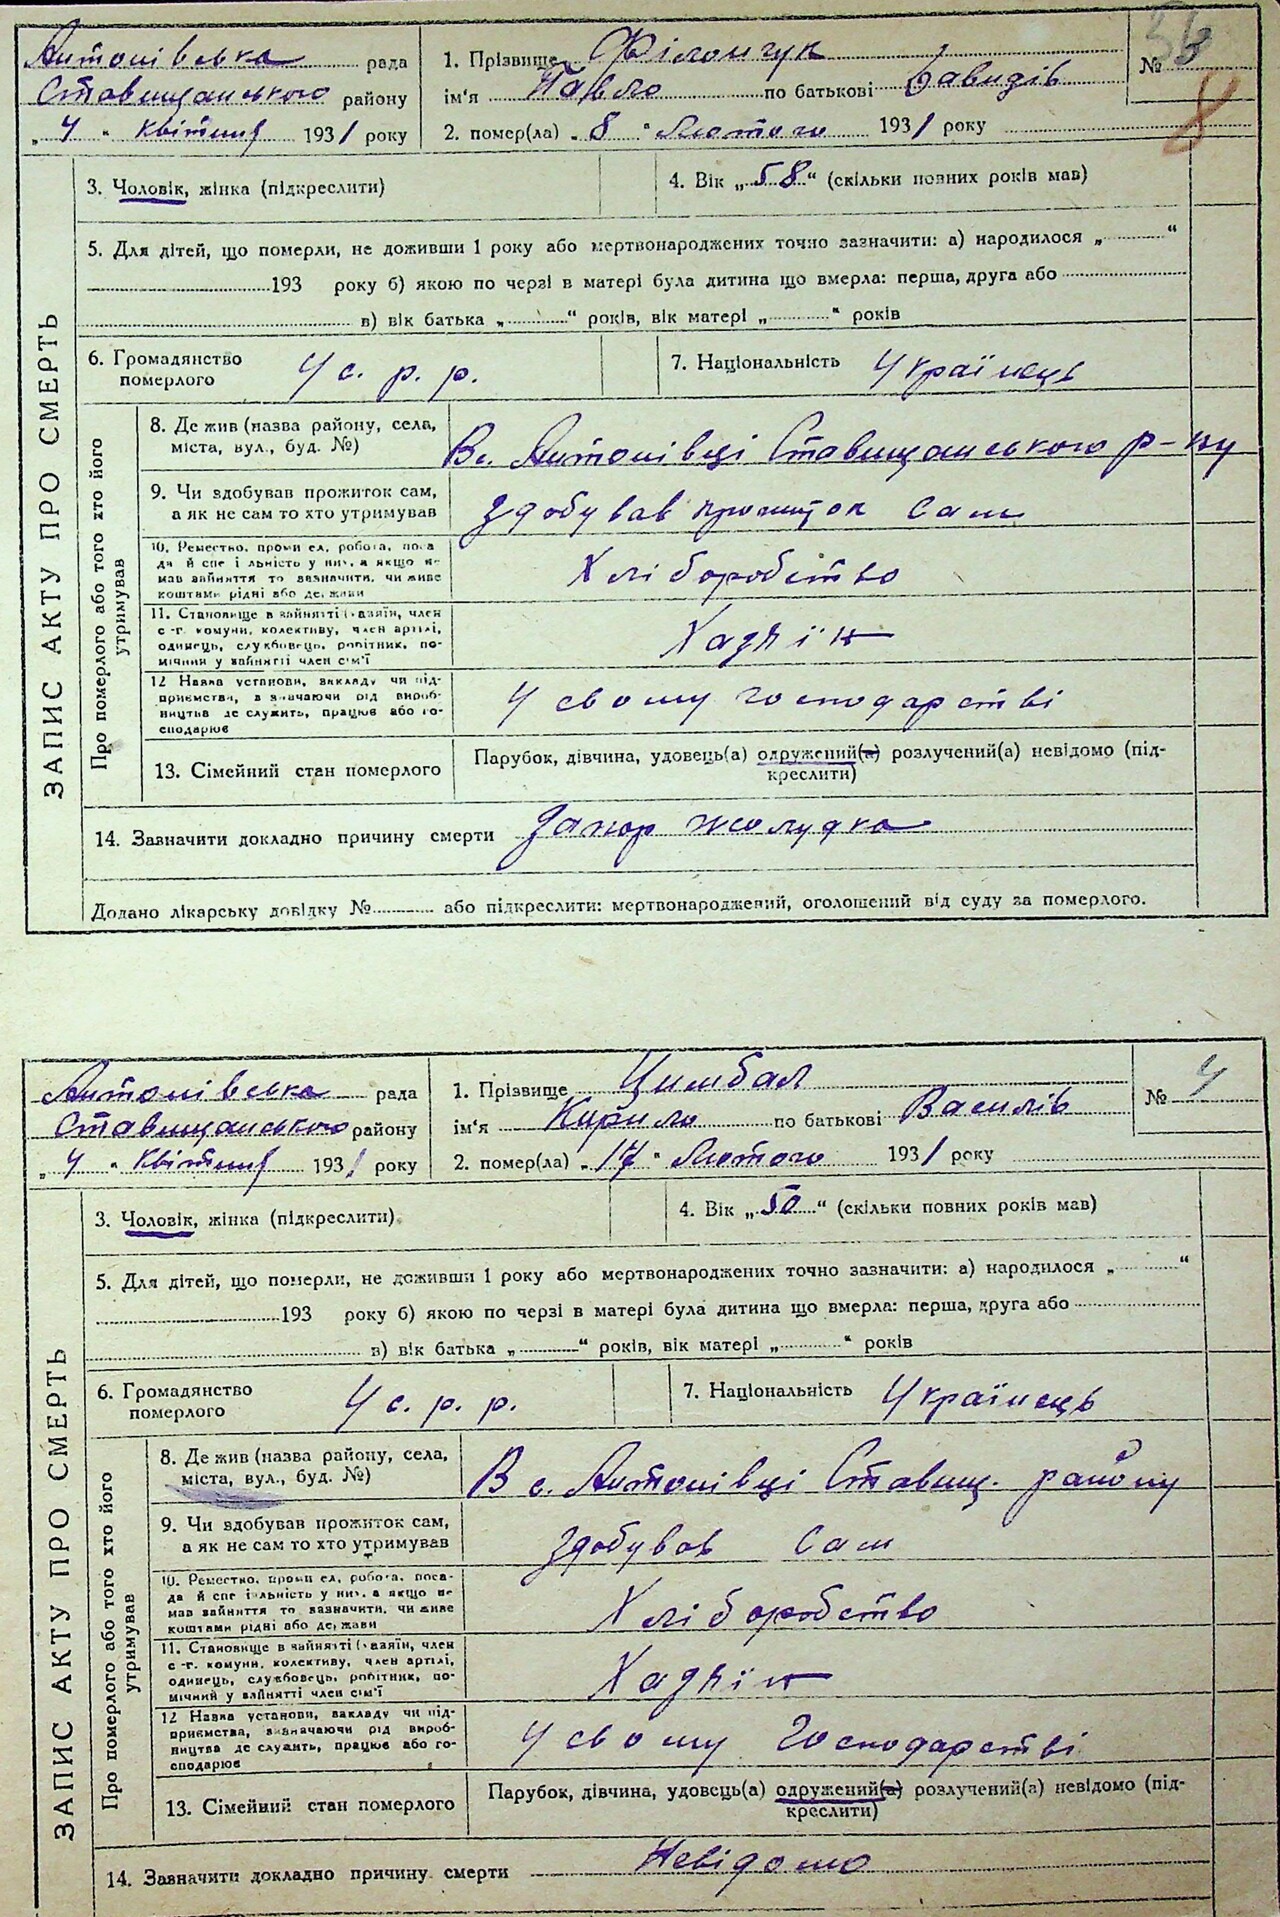 Антонівська рада
Ставищанського району
„ 4 " квітня 1931 року
1. Прізвище Філончук
ім'я Павло по батькові Давидів
2. помер(ла) „ 8 " Лютого 1931 року
№ 3
8
ЗАПИС АКТУ ПРО СМЕРТЬ
3. Чоловік, жінка (підкреслити)
4. Вік „ 58 " (скільки повних років мав)
5. Для дітей, що померли, не доживши 1 року або мертвонароджених точно зазначити: а) народилося „ "
193 року б) якою по черзі в матері була дитина що вмерла: перша, друга або
в) вік батька „ " років, вік матері „ " років
6. Громадянство
померлого
У с. р. р.
7. Національність Українець
Про померлого або того хто його
утримував
8. Де жив (назва району, села,
міста, вул., буд. №)
В с. Антонівці Ставищанського р-ну
9. Чи здобував прожиток сам,
а як не сам то хто утримував
Здобував прожиток Сам
10. Ремество, промисел, робота, поса
да й спеціяльність у них, а якщо не
мав зайняття то зазначити, чи живе
коштами рідні або держави
Хліборобство
11. Становище в зайнятті (хазяїн, член
с-г. комуни, колективу, член артілі,
одинець, службовець, робітник, по-
мічний у зайнятті член сім'ї
Хазяїн
12 Назва установи, закладу чи під-
приємства, визначаючи рід вироб-
ництва де служить, працює або го-
сподарює
У своему господарстві
13. Сімейний стан померлого
Парубок, дівчина, удовець(а) одружений(а) розлучений(а) невідомо (під-
креслити)
14. Зазначити докладно причину смерти Запор жолудка
Додано лікарську довідку № або підкреслити: мертвонароджений, оголошений від суду за померлого.
Антонівська рада
Ставищанського району
„ 4 " квітня 1931 року
1. Прізвище Цимбал
ім'я Кирило по батькові Василів
2. помер(ла) „ 17 " Лютого 1931 року
№ 4
ЗАПИС АКТУ ПРО СМЕРТЬ
3. Чоловік, жінка (підкреслити)
4. Вік „ 50 " (скільки повних років мав)
5. Для дітей, що померли, не доживши 1 року або мертвонароджених точно зазначити: а) народилося „ "
193 року б) якою по черзі в матері була дитина що вмерла: перша, друга або
в) вік батька „ " років, вік матері „ " років
6. Громадянство
померлого
У с. р. р.
7. Національність Українець
Про померлого або того хто його
утримував
8. Де жив (назва району, села,
міста, вул., буд. №)
В с. Антонівці Ставищ. району
9. Чи здобував прожиток сам,
а як не сам то хто утримував
Здобував Сам
10. Ремество, промисел, робота, поса-
да й спеціяльність у них, а якщо не
мав зайняття то зазначити, чи живе
коштами рідні або держави
Хліборобство
11. Становище в зайнятті (хазяїн, член
с-г. комуни, колективу, член артілі,
одинець, службовець, робітник, по-
мічний у зайнятті член сім'ї
Хазяїн
12 Назва установи, закладу чи під-
приємства, визначаючи рід вироб-
ництва де служить, працює або го-
сподарює
У своему Господарстві
13. Сімейний стан померлого
Парубок, дівчина, удовець(а) одружений(а) розлучений(а) невідомо (під-
креслити)
14. Зазначити докладно причину смерти Невідомо